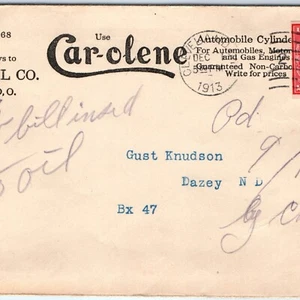 68
Use
Car-olene
Automobile Cylinde
For Automobiles, Motor
and Gas Engines
Guaranteed Non-Carbo
Write for prices
ys to
L CO.
O.
DEC
1913
bill insed
oil
Pd
9/
by C
Gust Knudson
Dazey N D
Bx 47